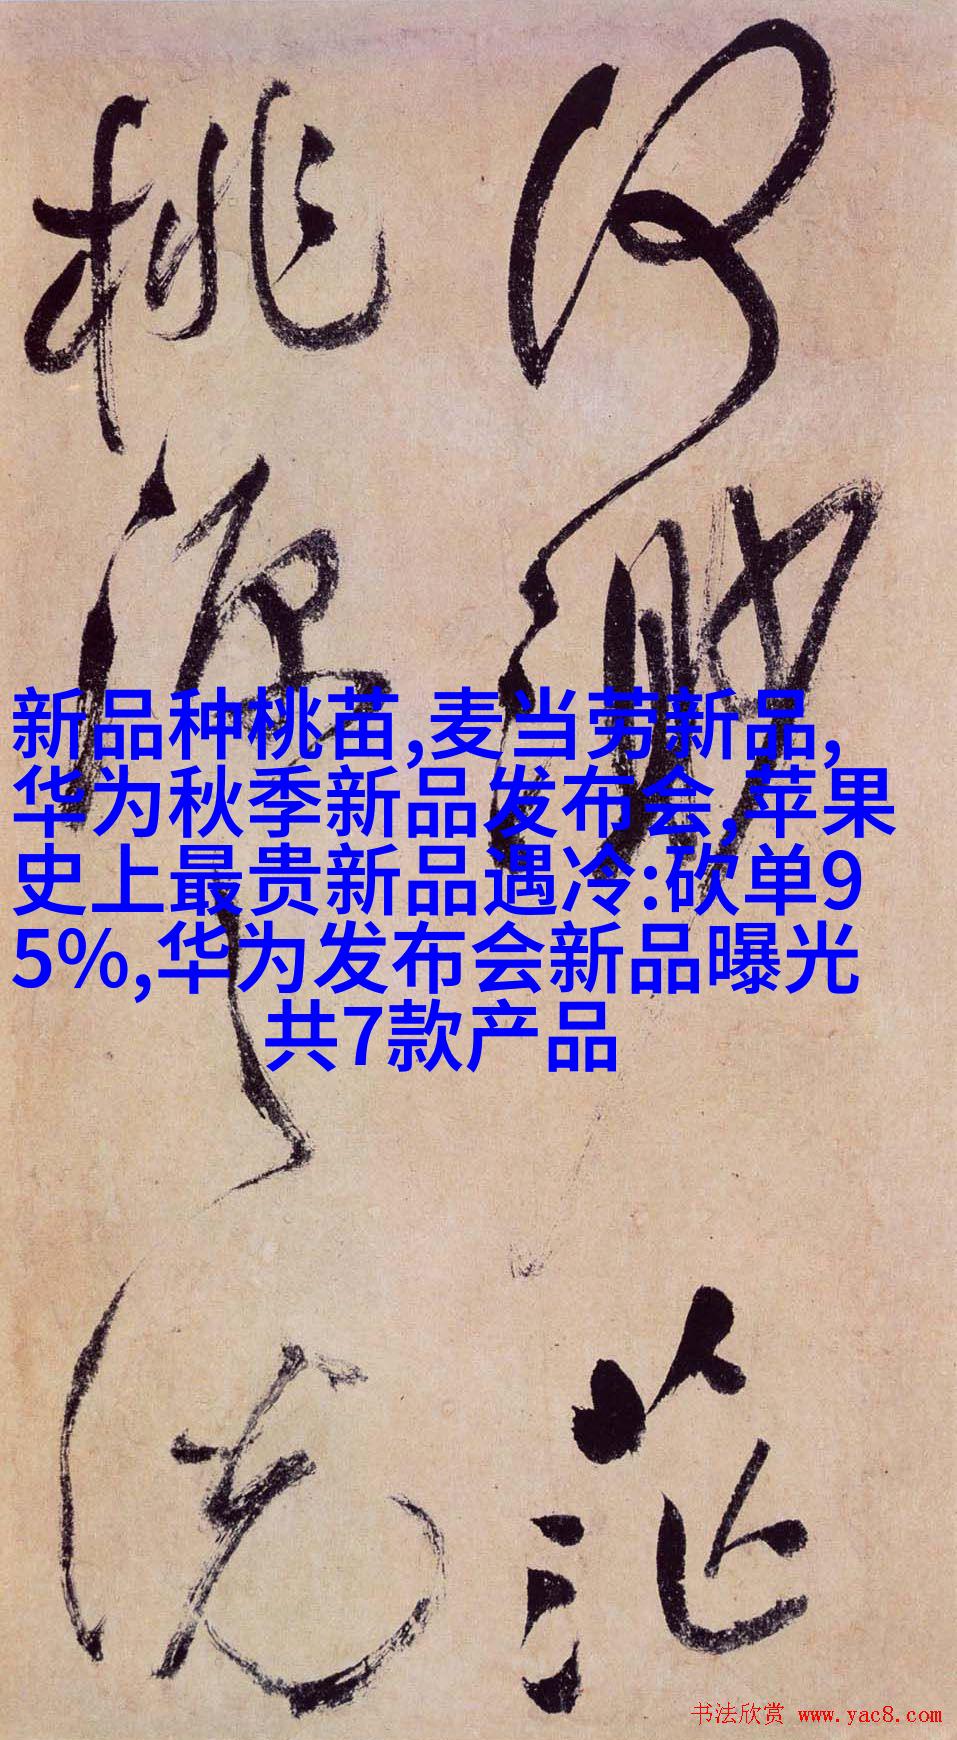 何渺茫
桃源之说
新品种桃苗,麦当劳新品,
华为秋季新品发布会,苹果
史上最贵新品遇冷:砍单9
5%,华为发布会新品曝光
共7款产品
书法欣赏 www.yac8.com